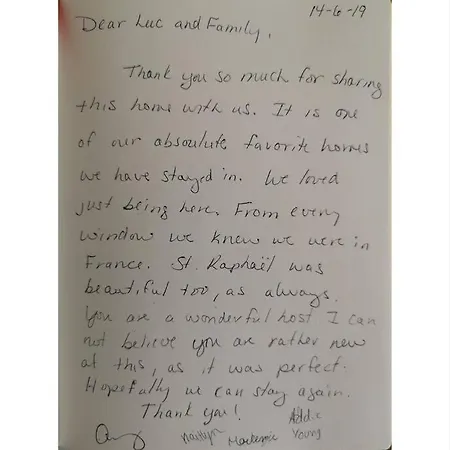 14-6-19
Dear Luc and Family,
Thank you so much for sharing
this home with us. It is one
of our absoulute favorite homes
we have stayed in. We loved
just being here. From every
window we knew we were in
France. St. Raphaël was
beautiful too, as always.
You are a wonderful host I can
not believe you are rather new
at this, as it was perfect.
Hopefully we can stay again.
Thank you!
Kaitlyn Mackenzie Addie
Young